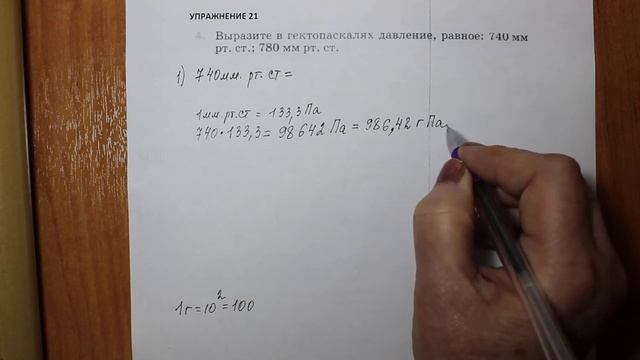 УПРАЖНЕНИЕ 21
4. Выразите в гектопаскалях давление, равное: 740 мм
рт. ст.; 780 мм рт. ст.
1) 740мм. рт. ст =
1мм.рт.ст = 133,3Па
740・133,3= 98642 Па = 986,42 гПа
1г=10²=100